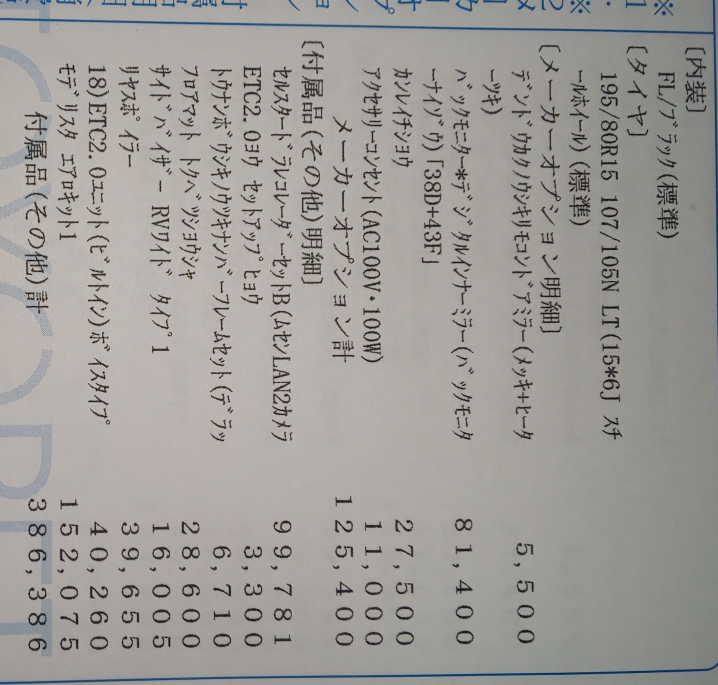 [内装]
FL/ブラック(標準)
[タイヤ]
195/80R15 107/105N LT(15*6J スチ
ールホイール)(標準)
[メーカーオプション明細]
デンドウカクノウシキリモコンドアミラー(メッキ+ヒータ
ーツキ) 5,500
バックモニター*デジタルインナーミラー(バックモニタ
ーナイゾウ)「38D+43F」 81,400
カンレイチシヨウ 27,500
アクセサリーコンセント(AC100V・100W) 11,000
メーカーオプション計 125,400
[付属品(その他)明細]
セルスタードラレコレーダーセットB(ムセンLAN2カメラ 99,781
ETC2.0ヨウ セットアップヒヨウ 3,300
トウナンボウシキノウツキナンバーフレームセット(デラッ 6,710
フロアマット トクベツシヨウシャ 28,600
サイドバイザー RVワイド タイプ1 16,005
リヤスポイラー 39,655
18)ETC2.0ユニット(ビルトイン)ボイスタイプ 40,260
モデリスタ エアロキット1 152,075
付属品(その他)計 386,386